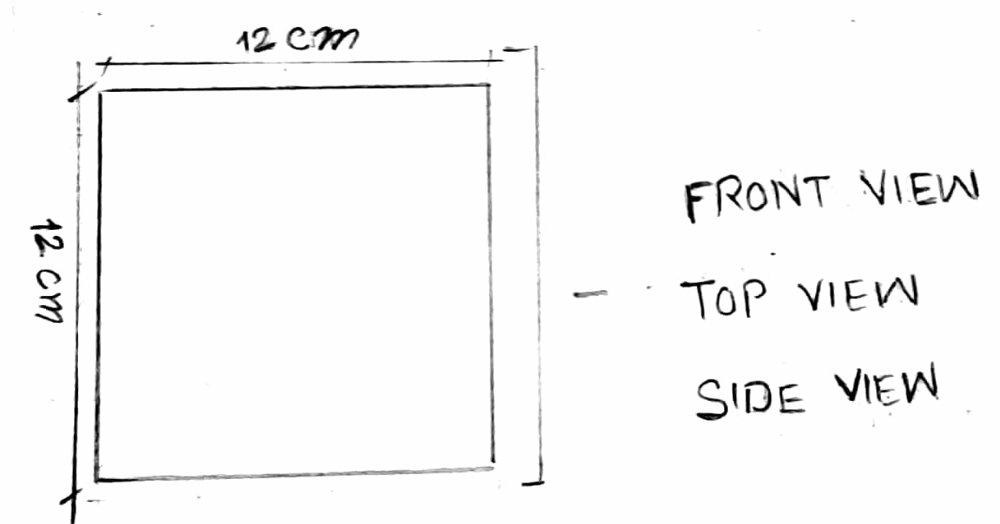 12 cm
12 cm
FRONT VIEW
- TOP VIEW
SIDE VIEW